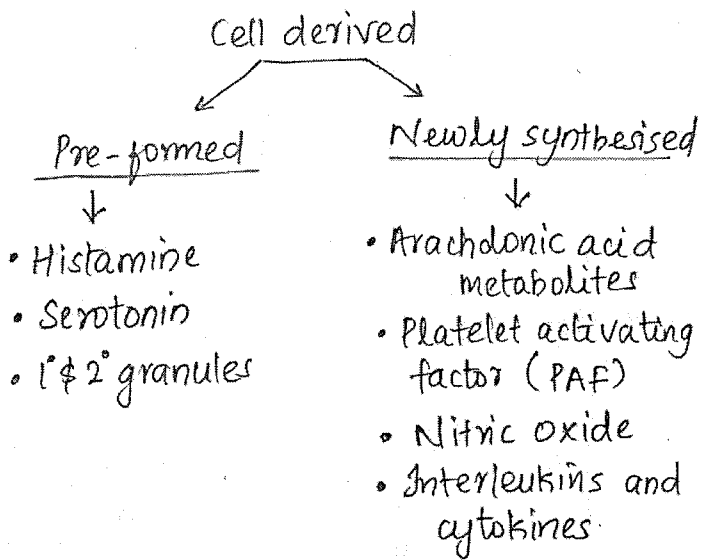 Cell derived
Pre-formed
• Histamine
• Serotonin
• 1° & 2° granules
Newly synthesised
• Arachdonic acid
metabolites
• Platelet activating
factor (PAF)
• Nitric oxide
• Interleukins and
cytokines.